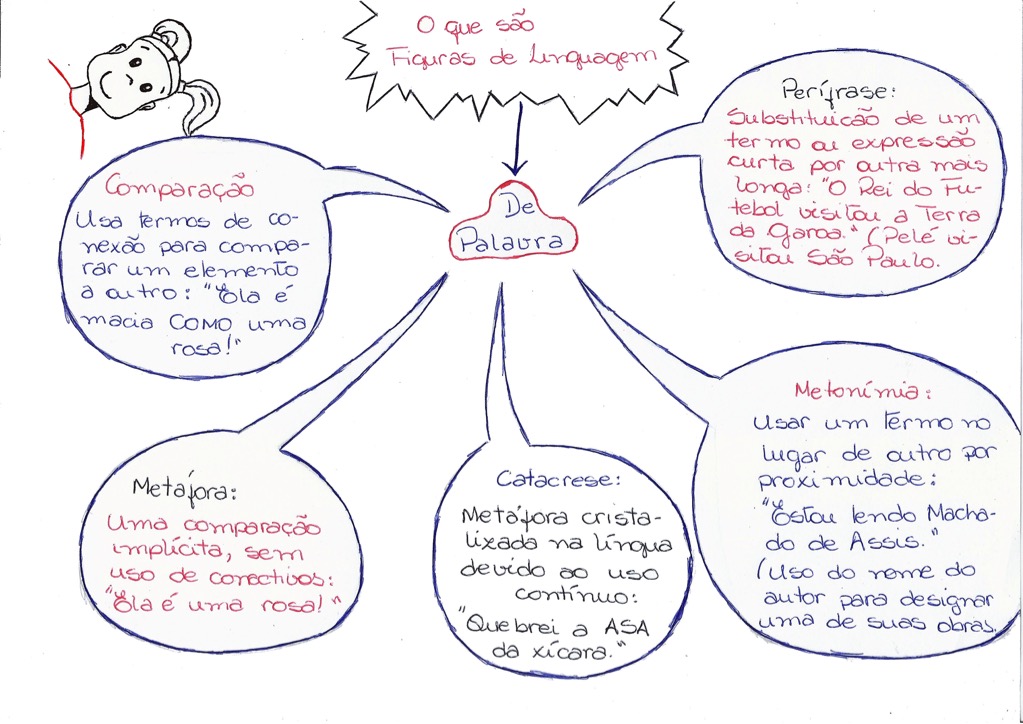 O que são
Figuras de Linguagem
De
Palavra
Comparação
Usa termos de co-
nexão para compa-
rar um elemento
a outro: "Ela é
macia COMO uma
rosa!"
Perífrase:
Substituicão de um
termo ou expressão
curta por outra mais
longa: "O Rei do Fu-
tebol visitou a Terra
da Garoa." (Pelé vi-
sitou São Paulo.
Metáfora:
Uma comparação
implícita, sem
uso de conectivos:
"Ela é uma rosa!"
Catacrese:
Metáfora crista-
lizada na língua
devido ao uso
contínuo:
"Quebrei a ASA
da xícara."
Metonímia:
Usar um termo no
lugar de outro por
proximidade:
"Estou lendo Macha-
do de Assis."
(Uso do nome do
autor para designar
uma de suas obras.